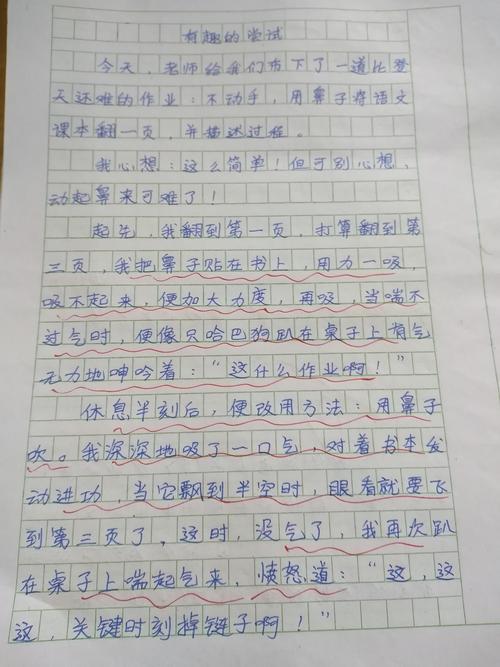 有趣的尝试
今天，老师给我们布下了一道比登
天还难的作业：不动手，用鼻子将语文
课本翻一页，并描述过程。
我心想：这么简单！但可别心想，
动起鼻来可难了！
起先，我翻到第一页，打算翻到第
三页，我把鼻子贴在书上，用力一吸，
吸不起来，便加大力度，再吸，当喘不
过气时，便像只哈巴狗趴在桌子上有气
无力地呻吟着：“这什么作业啊！”
休息半刻后，便改用方法：用鼻子
吹。我深深地吸了一口气，对着书本发
动进功，当它飘到半空时，眼看就要飞
到第三页了，这时，没气了，我再次趴
在桌子上喘起气来，愤怒道：“这，这
这，关键时刻掉链子啊！”